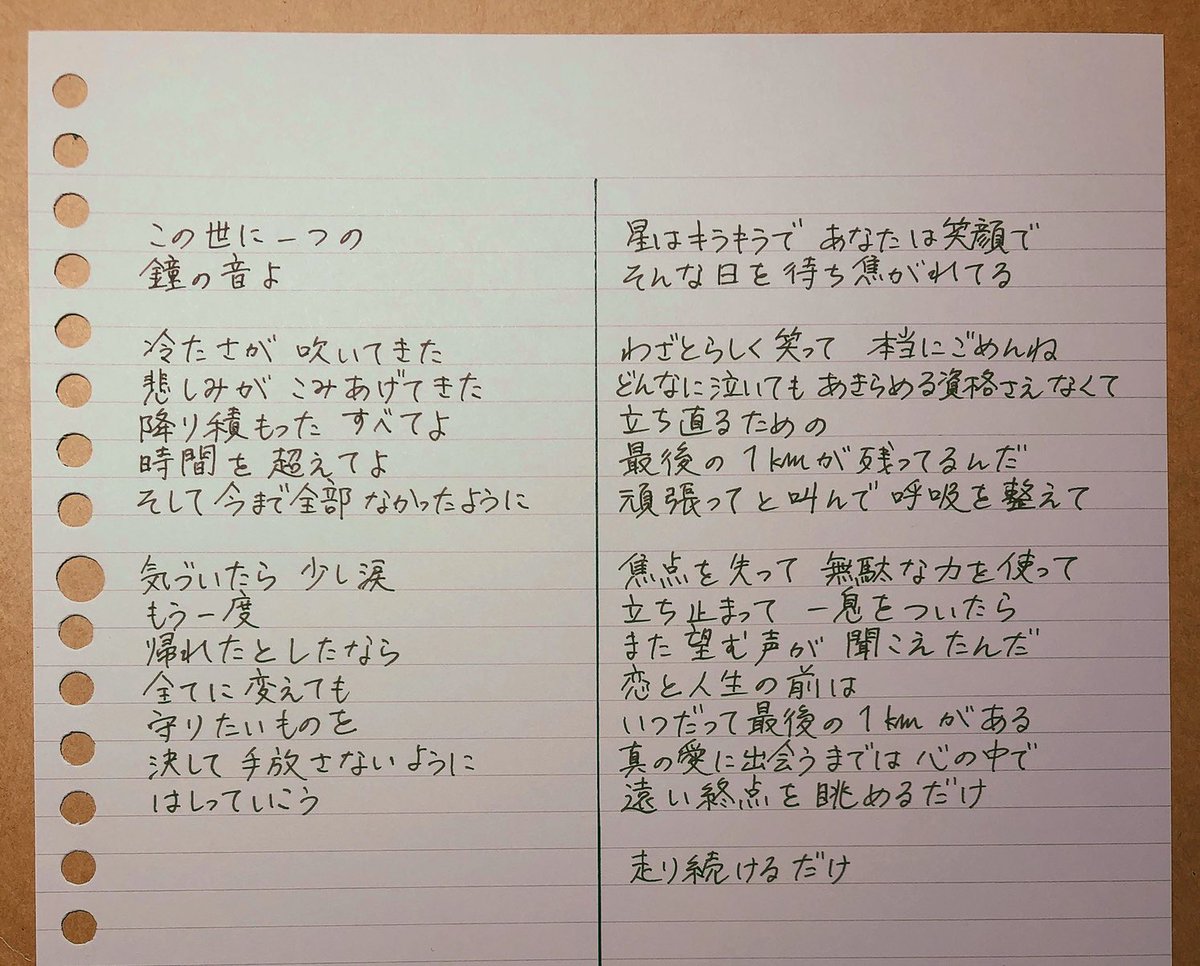 この世に一つの
鐘の音よ
冷たさが 吹いてきた
悲しみが こみあげてきた
降り積もった すべてよ
時間を 超えてよ
そして今まで全部 なかったように
気づいたら 少し涙
もう一度
帰れたとしたなら
全てに変えても
守りたいものを
決して手放さないように
はしっていこう
星はキラキラで あなたは笑顔で
そんな日を待ち焦がれてる
わざとらしく笑って 本当にごめんね
どんなに泣いても あきらめる資格さえなくて
立ち直るための
最後の1kmが残ってるんだ
頑張ってと叫んで呼吸を整えて
焦点を失って 無駄な力を使って
立ち止まって 一息をついたら
また望む声が 聞こえたんだ
恋と人生の前は
いつだって最後の1kmがある
真の愛に出会うまでは心の中で
遠い終点を眺めるだけ
走り続けるだけ